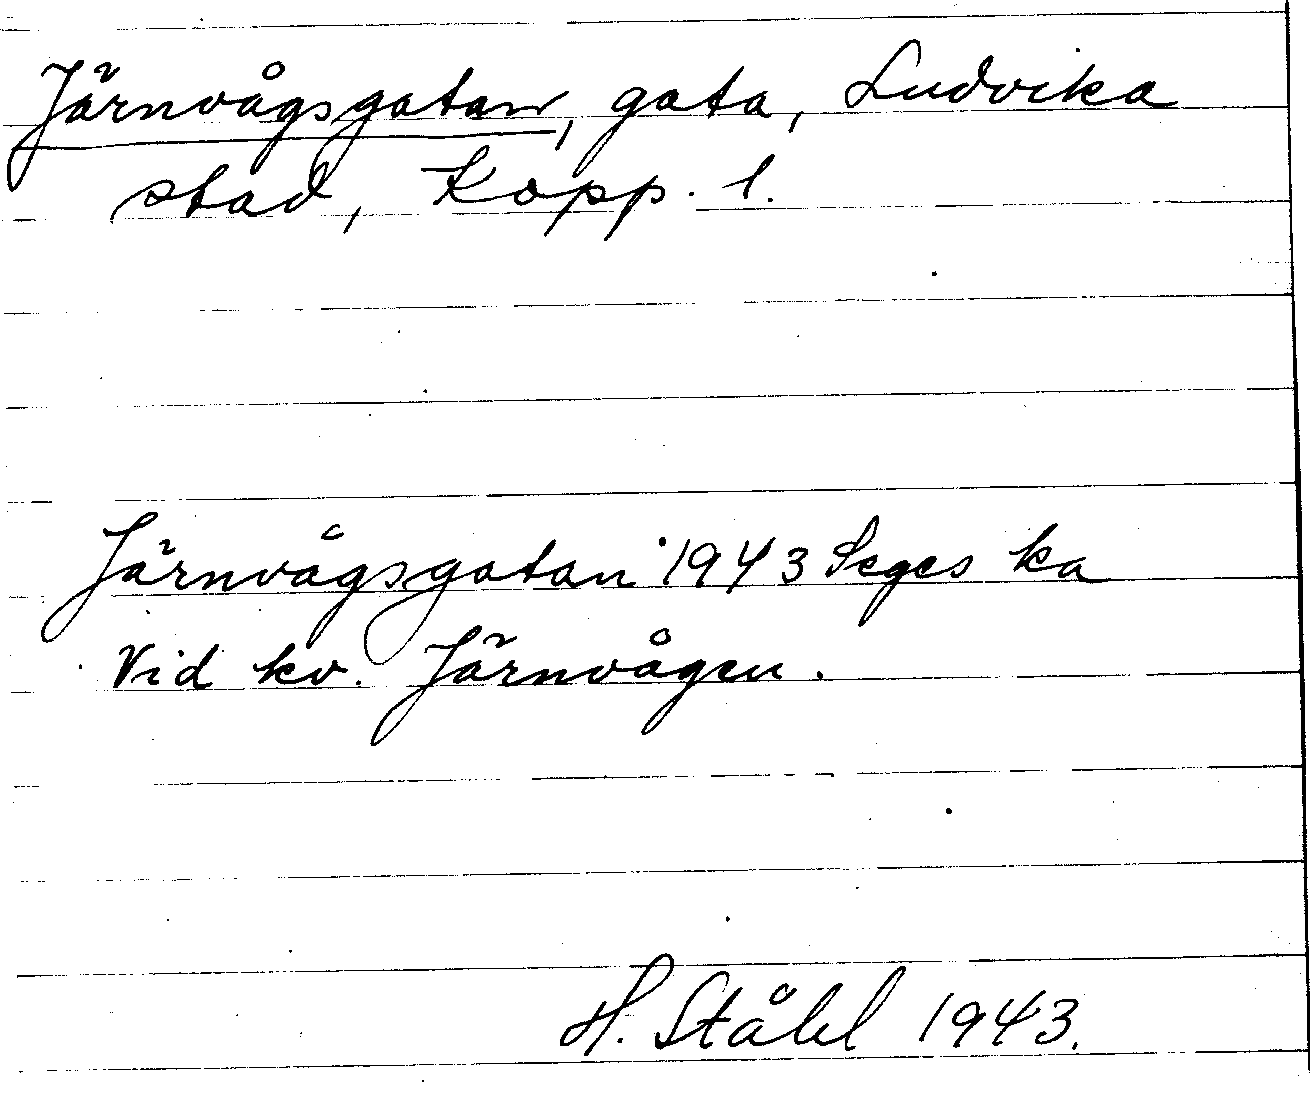 Järnvågsgatan, gata, Ludvika
stad, Kopp. l.
Järnvågsgatan 1943 Seges ka
Vid kv. Järnvågen.
H. Ståhl 1943.